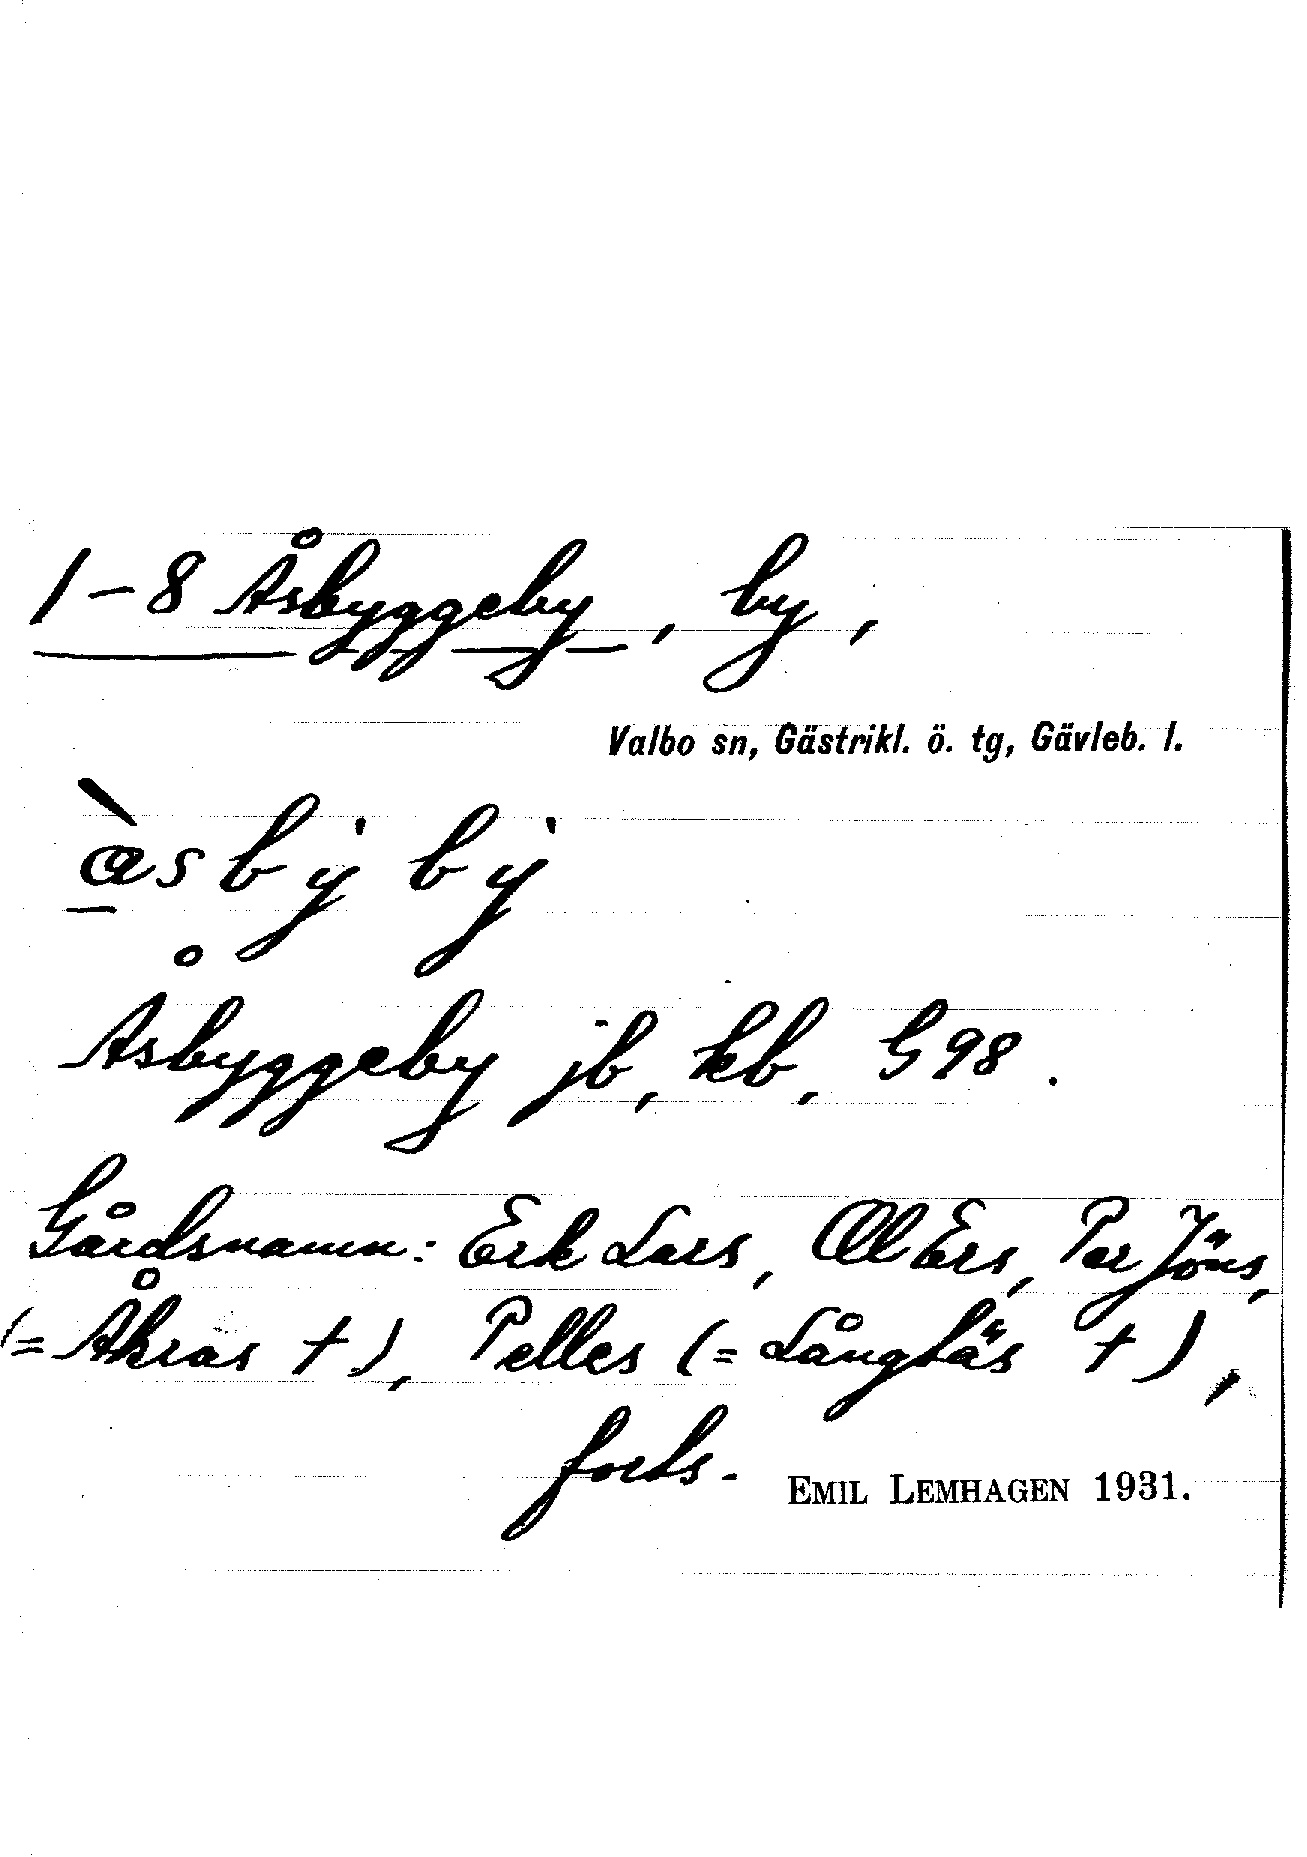 1-8 Åsbyggeby, by,
Valbo sn, Gästrikl. ö. tg, Gävleb. l.
Åsbyggeby jb, kb, G98.
Gårdsnamn: Erk Lars, Ol Ers, Per Jöns,
(= Åkras †), Pelles (= Långläs †),
forts.
EMIL LEMHAGEN 1931.